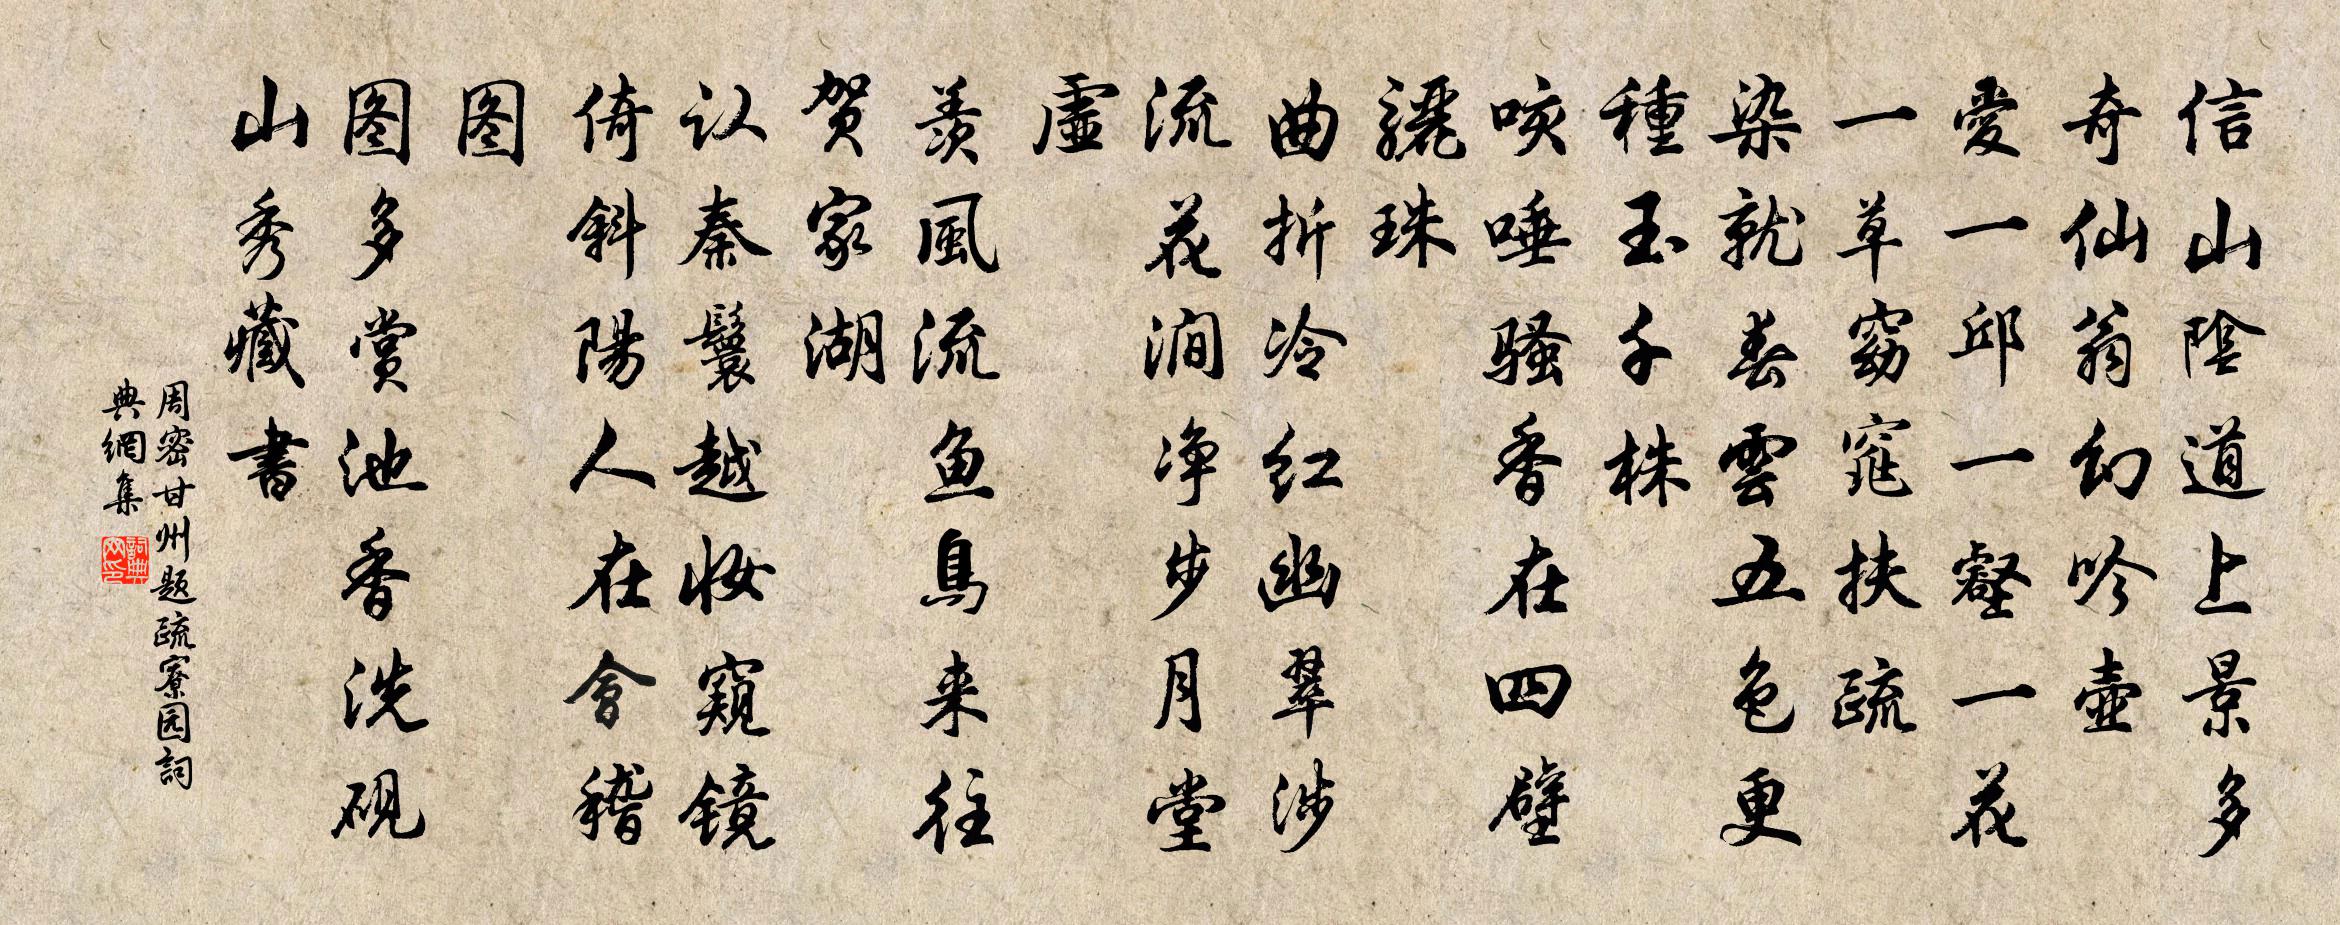 信山陰道上景多
奇仙翁幻吟壺
愛一邱一壑一花
一草窈窕扶疏
染就春雲五色更
種玉千株
咳唾騷香在四壁
驪珠
曲折冷红幽翠涉
流花涧净步月堂
虛
羨風流鱼鳥来往
贺家湖
认秦鬟越妝窺镜
倚斜陽人在會稽
图
图多赏池香洗砚
山秀藏書
周密甘州题疏寮园詞
典網集
詞典网印